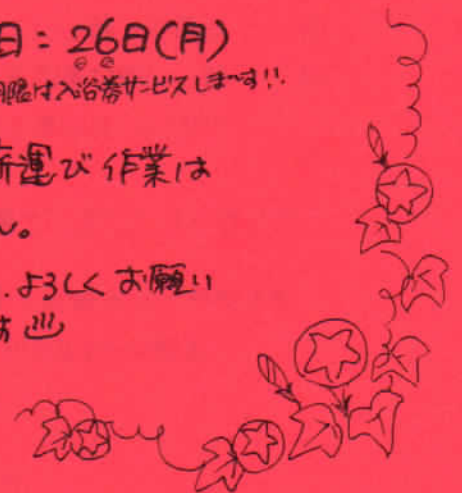 日：26日(月)
限は入浴券サービスしま～す!!
新運び作業は
ん。
よろしくお願い
す♨